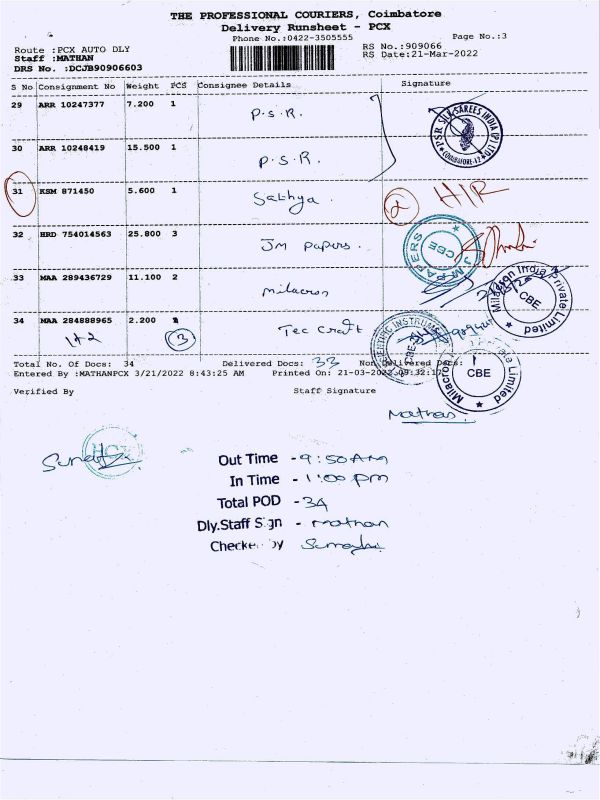 THE PROFESSIONAL COURIERS, Coimbatore
Delivery Runsheet - PCX
Phone No.:0422-3505555 Page No.:3
Route :PCX AUTO DLY RS No.:909066
Staff :MATHAN RS Date:21-Mar-2022
DRS No. :DCJB90906603
S No Consignment No Weight PCS Consignee Details Signature
29 ARR 10247377 7.200 1 P.S.R.
PSR SILK SAREES INDIA (P) LTD COIMBATORE-12
30 ARR 10248419 15.500 1 P.S.R.
31 KSM 871450 5.600 1 Sathya. 2 H/R
32 HRD 754014563 25.800 3 JM Papers.
JM PAPERS CBE
33 MAA 289436729 11.100 2 Milacron
Milacron India Private Limited CBE
34 MAA 284888965 2.200 Tec Craft
1+2 3
CBE
Milacron Private Limited CBE
Total No. Of Docs: 34 Delivered Docs: 33 Non Delivered Docs:
Entered By :MATHANPCX 3/21/2022 8:43:25 AM Printed On: 21-03-2022 09:32:17
Verified By Staff Signature
Mathan.
Out Time - 9:50 AM
In Time - 1:00 pm
Total POD - 34
Dly.Staff Sign - Mathan
Checked by